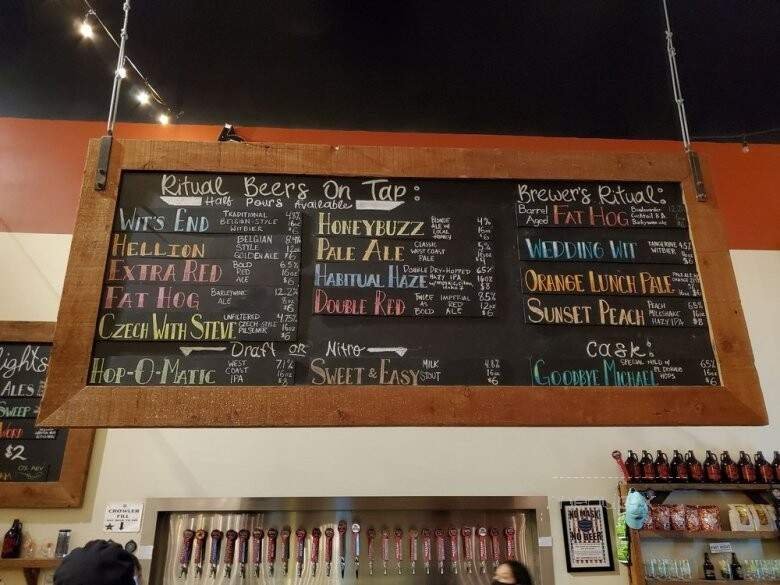 Ritual Beers On Tap:
Half Pours Available
WIT'S END TRADITIONAL BELGIAN-STYLE WITBIER 4.9%
$6
HELLION BELGIAN STYLE GOLDEN ALE 8.4%
12oz
$6
EXTRA RED BOLD RED ACE 6.5%
16oz
$6
FAT HOG BARLEYWINE ALE 12.2%
8oz
$6
CZECH WITH STEVE UNFILTERED CZECH-STYLE PILSENER 4.75%
16oz
$6
HONEYBUZZ BLONDE ALE W/ LOCAL HONEY 4%
16oz
$6
PALE ALE CLASSIC WEST COAST PALE 5%
16oz
HABITUAL HAZE DOUBLE DRY-HOPPED HAZY IPA 6.5%
16oz
$8
DOUBLE RED TWICE AS BOLD IMPERIAL RED ALE 8.5%
12oz
$6
Brewer's Ritual:
Barrel Aged FAT HOG
Barleywine ale
WEDDING WIT TANGERINE WITBIER 4.5%
ORANGE LUNCH PALE
SUNSET PEACH PEACH MILKSHAKE HAZY IPA 6.5%
16oz
$8
Draft or Nitro
HOP-O-MATIC WEST COAST IPA 7.1%
16oz
$8
SWEET & EASY MILK STOUT 4.8%
16oz
$6
Cask:
GOODBYE MICHAEL SPECIAL MILD W/ EL DORADO HOPS 6.5%
16oz
$6
ights
ALES
SWEEP
$2
CROWLER
FILL
NO MASK
NO BEER